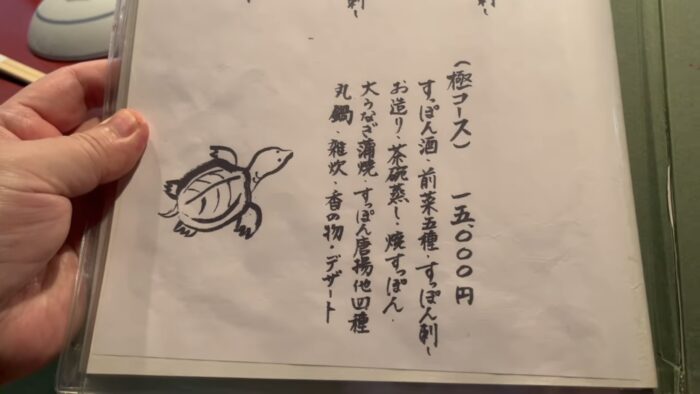 （極コース） 一五、〇〇〇円
すっぽん酒・前菜五種・すっぽん刺し
お造り・茶碗蒸し・焼すっぽん・
大うなぎ蒲焼・すっぽん唐揚他四種
丸鍋・雑炊・香の物・デザート